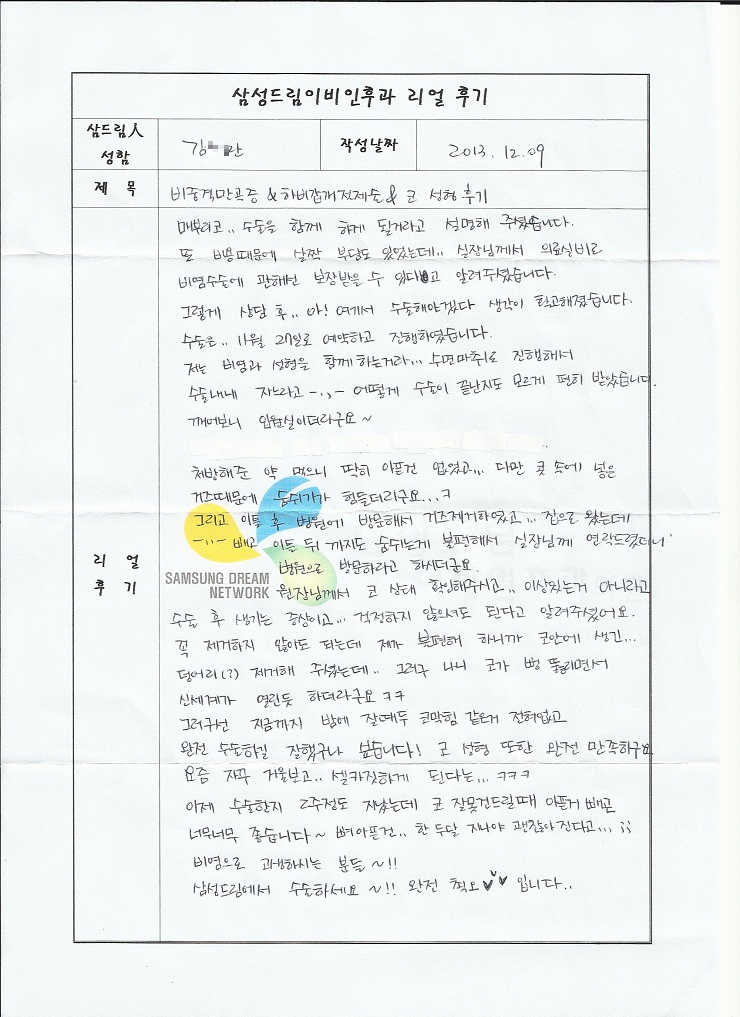 삼성드림이비인후과 리얼 후기
삼드림人
성함
김 만
작성날짜
2013. 12. 09
제 목
비중격만곡증 & 하비갑개절제술 & 코 성형 후기
리 얼
후 기
매부리코.. 수술을 함께 하게 될거라고 설명해 주셨습니다.
또 비용때문에 살짝 부담도 있었는데.. 실장님께서 의료실비로
비염수술에 관해선 보장받을 수 있다고 알려주셨습니다.
그렇게 상담 후.. 아! 여기서 수술해야겠다 생각이 확고해졌습니다.
수술은.. 11월 27일로 예약하고 진행하였습니다.
저는 비염과 성형을 함께하는거라... 수면마취로 진행해서
수술내내 자느라고 -.,- 어떻게 수술이 끝난지도 모르게 편히 받았습니다.
깨어보니 입원실이더라구요~
처방해준 약 먹으니 딱히 아픈건 없었고... 다만 콧 속에 넣은
거즈때문에 숨쉬기가 힘들더라구요...ㅋ
그리고 이틀 후 병원에 방문해서 거즈제거하였고... 집으로 왔는데
-..- 빼고 이틀 뒤 까지도 숨쉬는게 불편해서 실장님께 연락드렸더니
병원으로 방문하라고 하시더군요.
SAMSUNG DREAM
NETWORK
원장님께서 코 상태 확인해주시고.. 이상있는거 아니라고
수술 후 생기는 증상이고... 걱정하지 않으셔도 된다고 알려주셨어요.
꼭 제거하지 않아도 되는데 제가 불편해 하니까 코안에 생긴...
덩어리(?) 제거해 주셨는데.. 그러구 나니 코가 뻥 뚫리면서
신세계가 열린듯 하더라구요 ㅋㅋ
그러구선 지금까지 밤에 잘때두 코막힘 같은거 전혀없고
완전 수술하길 잘했구나 싶습니다! 코 성형 또한 완전 만족하구요
요즘 자꾸 거울보고.. 셀카질하게 된다는... ㅋㅋㅋ
이제 수술한지 2주정도 지났는데 코 잘못건드릴때 아픈거 빼곤
너무너무 좋습니다~ 뼈아픈건.. 한 두달 지나야 괜찮아진다고... ;;
비염으로 고생하시는 분들~!!
삼성드림에서 수술하세요~!! 완전 척요♥♥♥ 입니다..